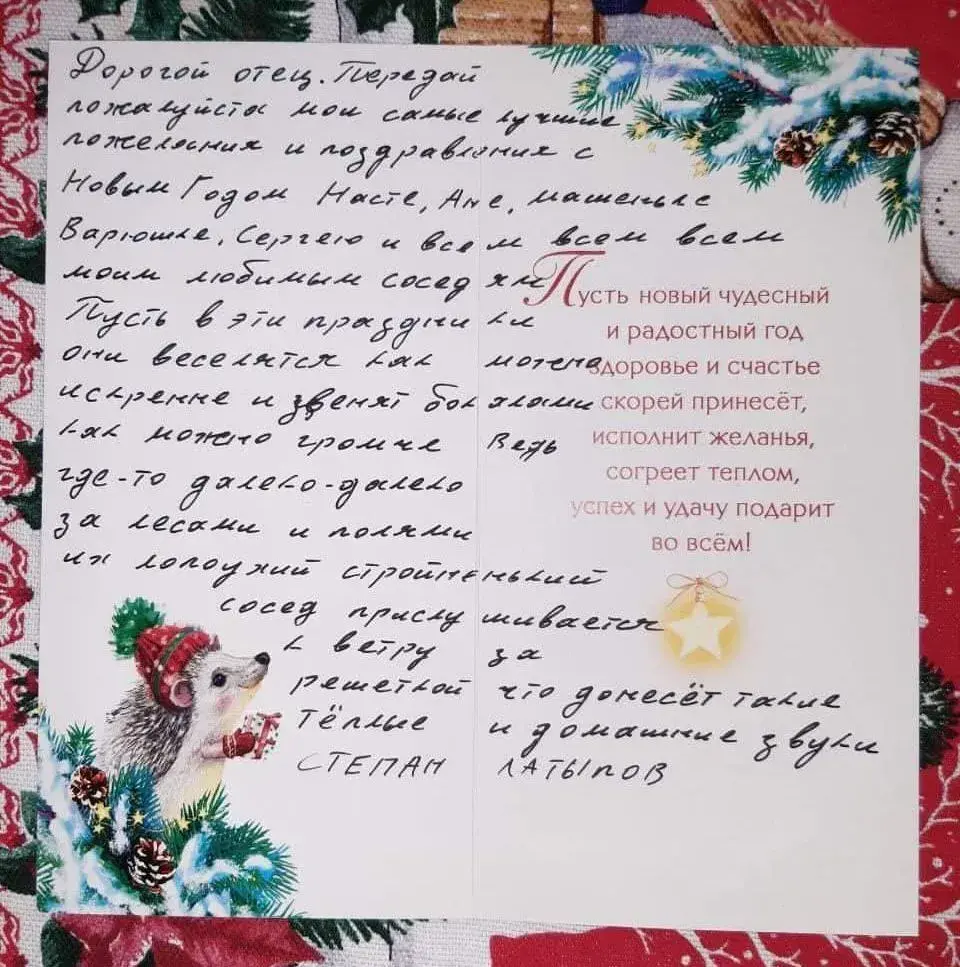 Дорогой отец. Передай
пожалуйста мои самые лучшие
пожелания и поздравления с
Новым Годом Насте, Ане, машеньке
Варюшке, Сергею и всем всем всем
моим любимым соседям
Пусть в эти праздники
они веселятся как можно
искренне и звенят бокалами
как можно громче Ведь
где-то далеко-далеко
за лесами и полями
их лопоухий стройненький
сосед прислушивается
к ветру за
решеткой что донесёт такие
тёплые и домашние звуки
СТЕПАН ЛАТЫПОВ
Пусть новый чудесный
и радостный год
здоровье и счастье
скорей принесёт,
исполнит желанья,
согреет теплом,
успех и удачу подарит
во всём!